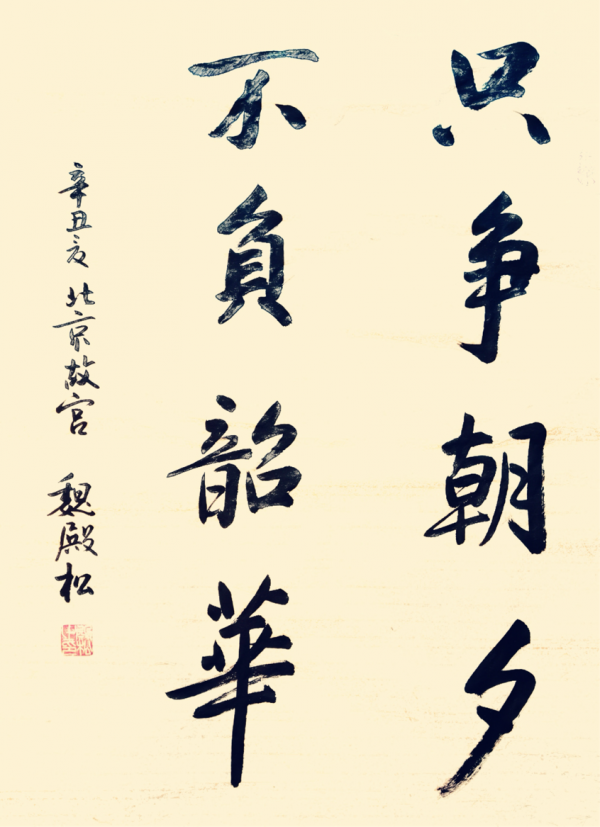 只争朝夕
不負韶華
辛丑 北京故宫 魏殿松